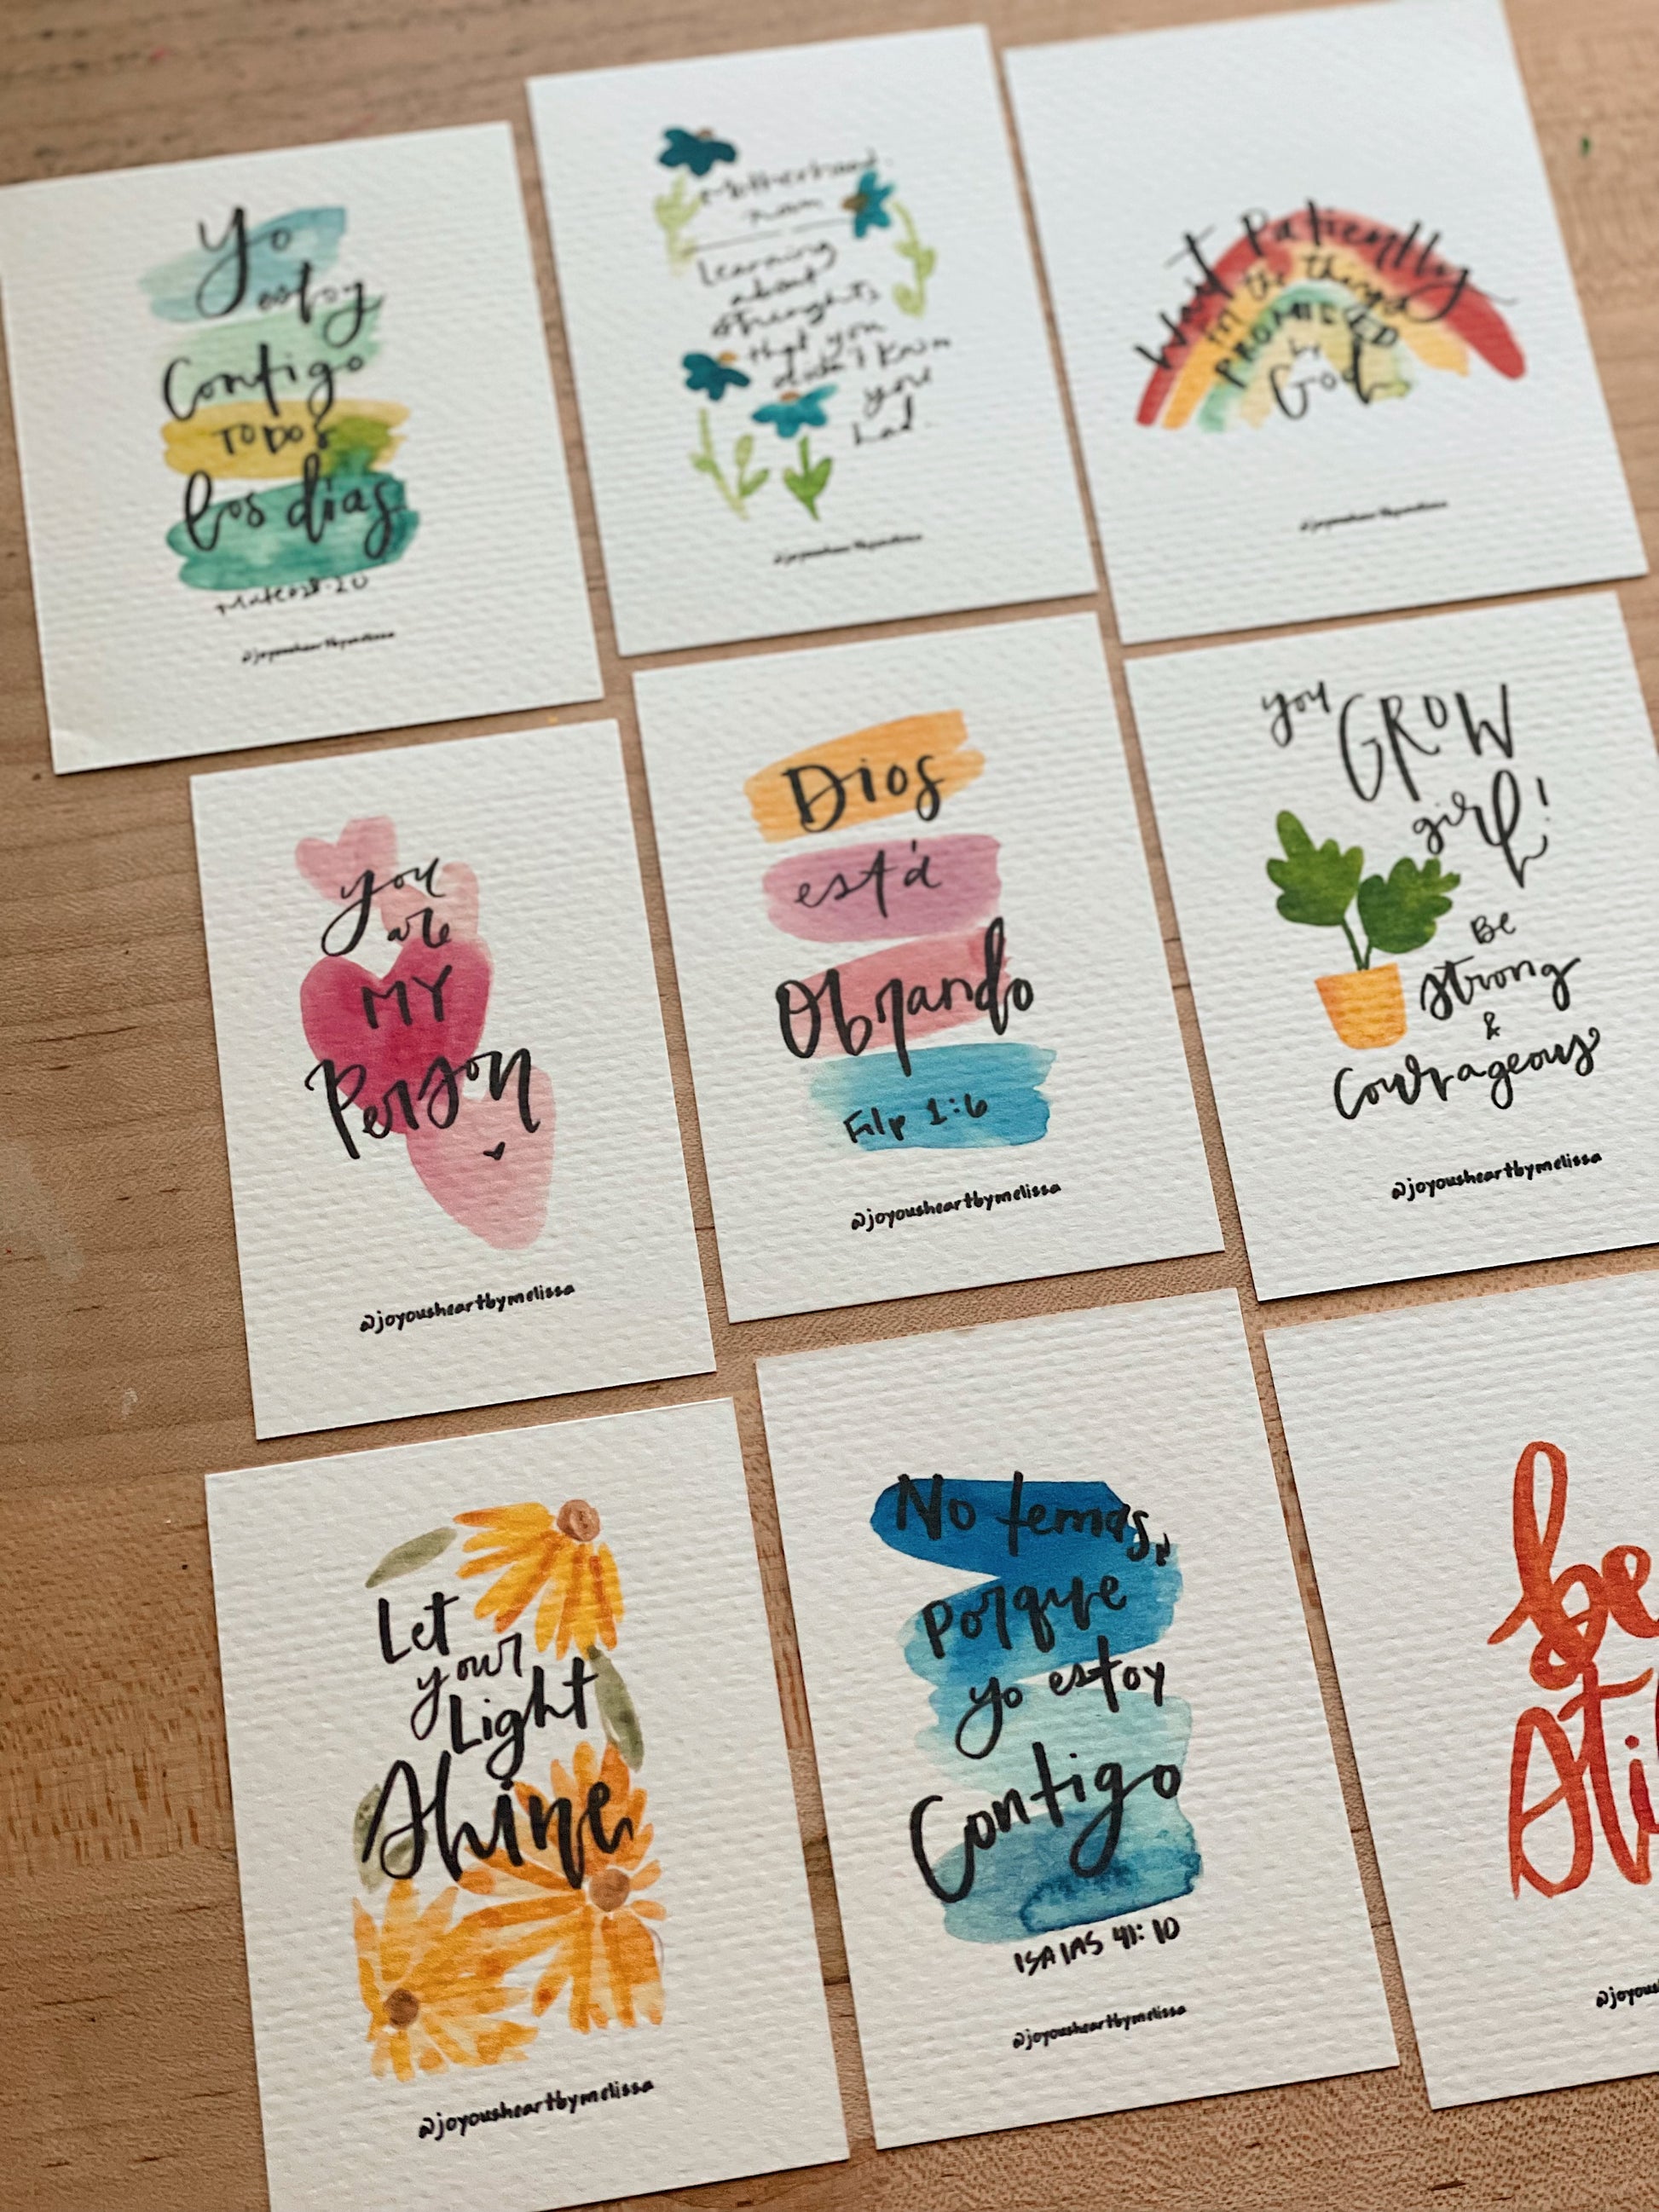 Yo
estoy
Contigo
TODOS
los días
Mateo 28:20
@joyousheartbymelissa
Motherhood
noun
Learning
about
strenghts
that you
didn't know
you
had.
@joyousheartbymelissa
Wait Patiently
for the things
PROMISED
by
God
@joyousheartbymelissa
you
are
MY
Person
@joyousheartbymelissa
Dios
está
Obrando
Filp 1:6
@joyousheartbymelissa
you GROW
girl!
Be
strong
&
Courageous
@joyousheartbymelissa
Let
your
Light
Shine
@joyousheartbymelissa
No temas,
Porque
yo estoy
Contigo
ISAIAS 41:10
@joyousheartbymelissa
be